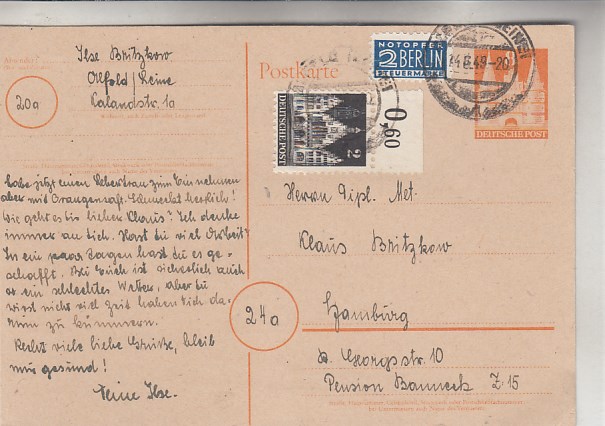 Ilse Britzkow
Alfeld / Leine
20a
Kalandstr. 1a
Postkarte
NOTOPFER
2 BERLIN
STEUERMARKE
49-20
8
DEUTSCHE POST
DEUTSCHE POST
2
0,60
Habe jetzt einen Lebertran zum Einnehmen
aber mit Orangensaft. Schmeckt herrlich!
Wie geht es dir lieber Klaus? Ich denke
immer an dich. Hast du viel Arbeit?
In ein paar Tagen hast du es ge-
schafft. Bei Euch ist sicherlich auch
so ein schlechtes Wetter, aber du
wirst nicht viel Zeit haben dich da-
rum zu kümmern.
Recht viele liebe Grüße, bleib
mir gesund!
Deine Ilse.
Herrn Dipl. Met.
Klaus Britzkow
24a
Hamburg
Georgstr. 10
Pension Z. 15